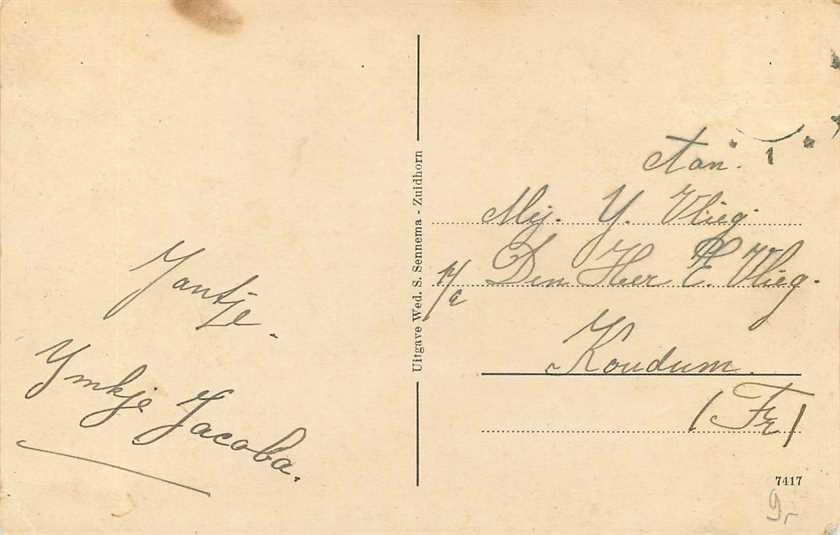 Jantje.
Ymkje Jacoba.
Uitgave Wed. S. Sennema - Zuidhorn
1
Aan.
Mej. Y. Vlieg.
p/a Den Heer E. Vlieg.
Koudum.
(Fr)
7417